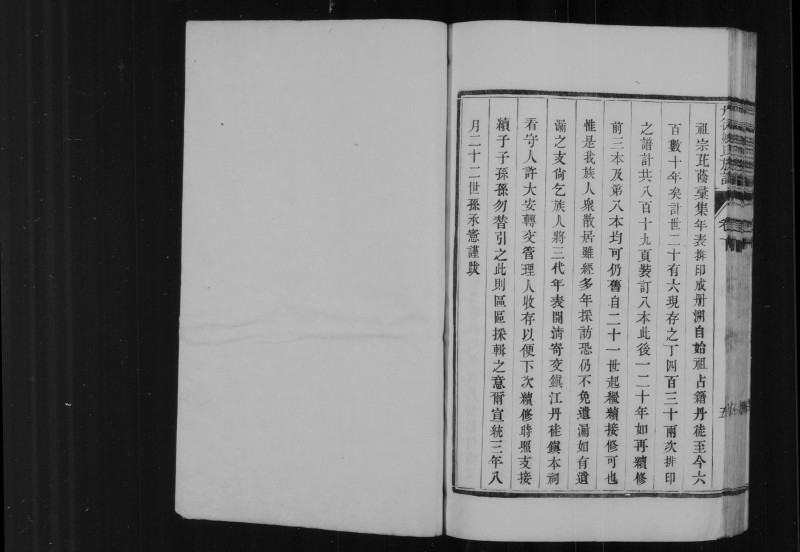 祖宗庇蔭彙集年表排印成册溯自始祖占籍丹徒至今六
百數十年矣計世二十有六現存之丁四百三十兩次排印
之譜計共八百十九頁裝訂八本此後一二十年如再續修
前三本及第八本均可仍舊自二十一世起繼續接修可也
惟是我族人衆散居雖經多年採訪恐仍不免遺漏如有遺
漏之支尙乞族人將三代年表開清寄交鎭江丹徒鎭本祠
看守人許大安轉交管理人收存以便下次續修時照支接
續子子孫孫勿替引之此則區區採輯之意爾宣統三年八
月二十二世孫承憲謹跋